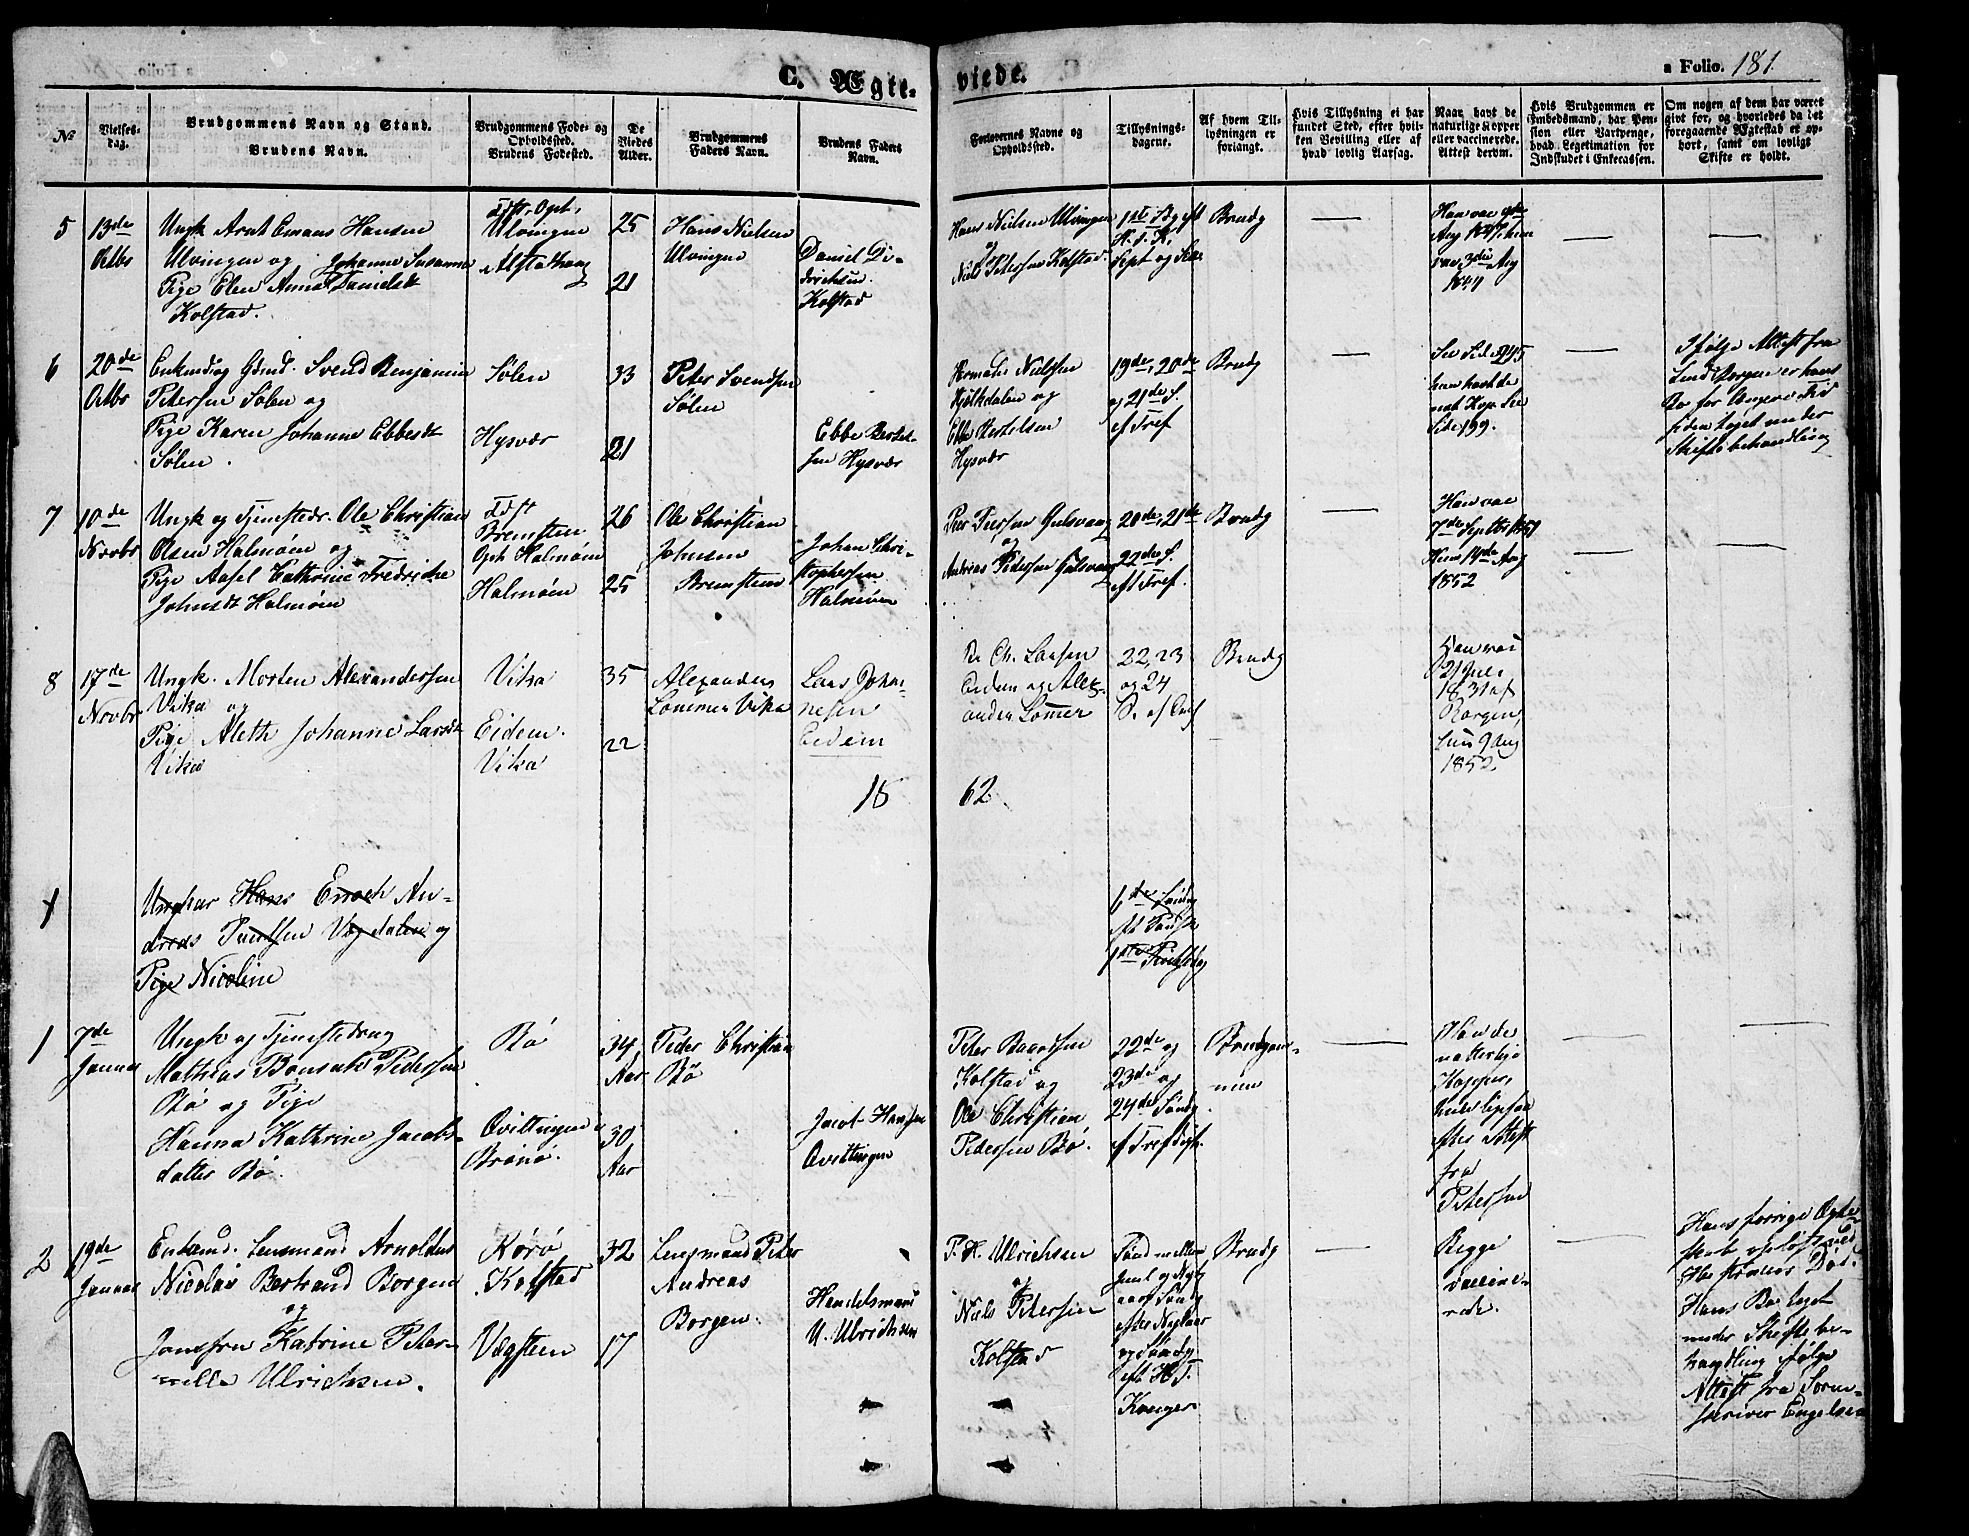 C. Ægte-
viede.
a Folio. 181.
No
Vielses-
dag.
Brudgommens Navn og Stand.
Brudens Navn.
Brudgommens Føde- og
Opholdssted.
Brudens Fødested.
De
Viedes
Alder.
Brudgommens
Faders Navn.
Brudens Faders
Navn.
Forlovernes Navne og
Opholdssted.
Tillysnings-
dagene.
Af hvem Til-
lysningen er
forlangt.
Hvis Tillysning ei har
fundet Sted, efter hvil-
ken Bevilling eller af
hvad lovlig Aarsag.
Naar havt de
naturlige Kopper
eller vaccinerede.
Attest derom.
Hvis Brudgommen er
Embedsmand, har Pen-
sion eller Vartpenge,
hvad Legitimation for
Indskudet i Enkecassen.
Om nogen af dem har været
gift før, og hvorledes da det
foregaaende Ægteskab er op-
hørt, samt om lovligt
Skifte er holdt.
5
13de
Octbr
Ungk Arnt Emans Hansen
Ulvingen og Johanne Susanna
Pige Elen Anna Danielsdt
Kolstad.
Opt.
Ulvingen
Alstadhaug
25
21
Hans Nielsen
Ulvingen
Daniel Di-
drichsen
Kolstad
Hans Nielsen Ulvingen
og
Niels Petersen Kolstad
1ste
Sept og
Brudg
Han var
Aug
var 3die Aug
6
20de
Octbr
Enkmd og Gdmd. Svend Benjamin
Petersen Sølen og
Pige Karen Johanne Ebbesdt
Sølen.
Sølen
Hysvær
33
21
Peter Svendsen
Sølen
Ebbe Bertel-
sen Hysvær
Nielsen
og
Ebbe Bertelsen
Hysvær
19de, 20de
og 21de S.
ef Tref
Brudg
See Side
han havt de
nat Kop. See
Side 199.
Ifølge Attest fra
Lensm Borgen er hans
Bo for længere Tid
siden taget under
Skiftebehandling
7
10de
Novbr
Ungk og Tjenestedr. Ole Christian
Olsen Halmøen og
Pige Aasel Cathrine Fredrikke
Johnsdt Halmøen
Født
Bremsten
Oph Halmøen
Halmøen
26
25
Ole Christian
Johnsen
Bremsteen
Johan Chri-
stophersen
Halmøen
Peer Peersen Gulsvaag
og
Andreas Pedersen Gulsvaag
20de, 21de
22de S.
ef Tref.
Brudg
Han vac
7de Septbr
Hun 14de Aug
1852
8
17de
Novbr
Ungk. Morten Alexandersen
Vika og
Pige Aleth Johanne Larsdt
Vika
Vika
Eidem.
Vika
35
22
Alexander
Lommer Vika
Lars Johan-
nesen
Eidem
Larsen
Eidem og Alex-
ander Lommer
22, 23
og 24
S. ef
Brudg
Han vac
21 Juli
1831 af
Borgen,
hun 9 Aug
1852.
18
62
1
Ungkar Hans Enoch An-
dreas Paulsen Vægdalen og
Pige Nicoline
6de Sønd
1
7de
Januar
Ungk og Tjenestedreng
Mathias Bonsak Pedersen
Bø og Pige
Hanna Kathrine Jacobs-
datter Bø.
Bø
Qvittingen
Brønø.
34
Aar
30
Aar
Peder Christian
Bø
Jacob Hansen
Qvittingen
Peter Baardsen
Kolstad og
Ole Christian
Pedersen Bø.
22de og
23de og
24de Sønd
ef Trefdigh.
Brudgom-
men
Han de
Kopper,
efter Attest
fra
Petersen
2
19de
Januar
Enkemd. Lensmand Arnoldus
Nicolai Bertrand Borgen
og
Jomfru Katrine Peter-
nille Ulrichsen.
Rørø
Kolstad
Vægsteen
32
17
Lensmand Peter
Andreas
Borgen.
Handelsmand
U. Ulrichsen
P. H. Ulrichsen
og
Niels Petersen
Kolstad
Sønd mellem
Juul og Nyt
aar Sønd
efter Nytaar
og Søndg
eft H. T.
Konger
Brudg
Begge
vaccine-
rede.
Hans forrige Ægte-
skab opløst ved
Hustruens Død.
Hans Bo taget
under Skiftebe-
handling ifølge
Attest fra Soren-
skriver Engelsen